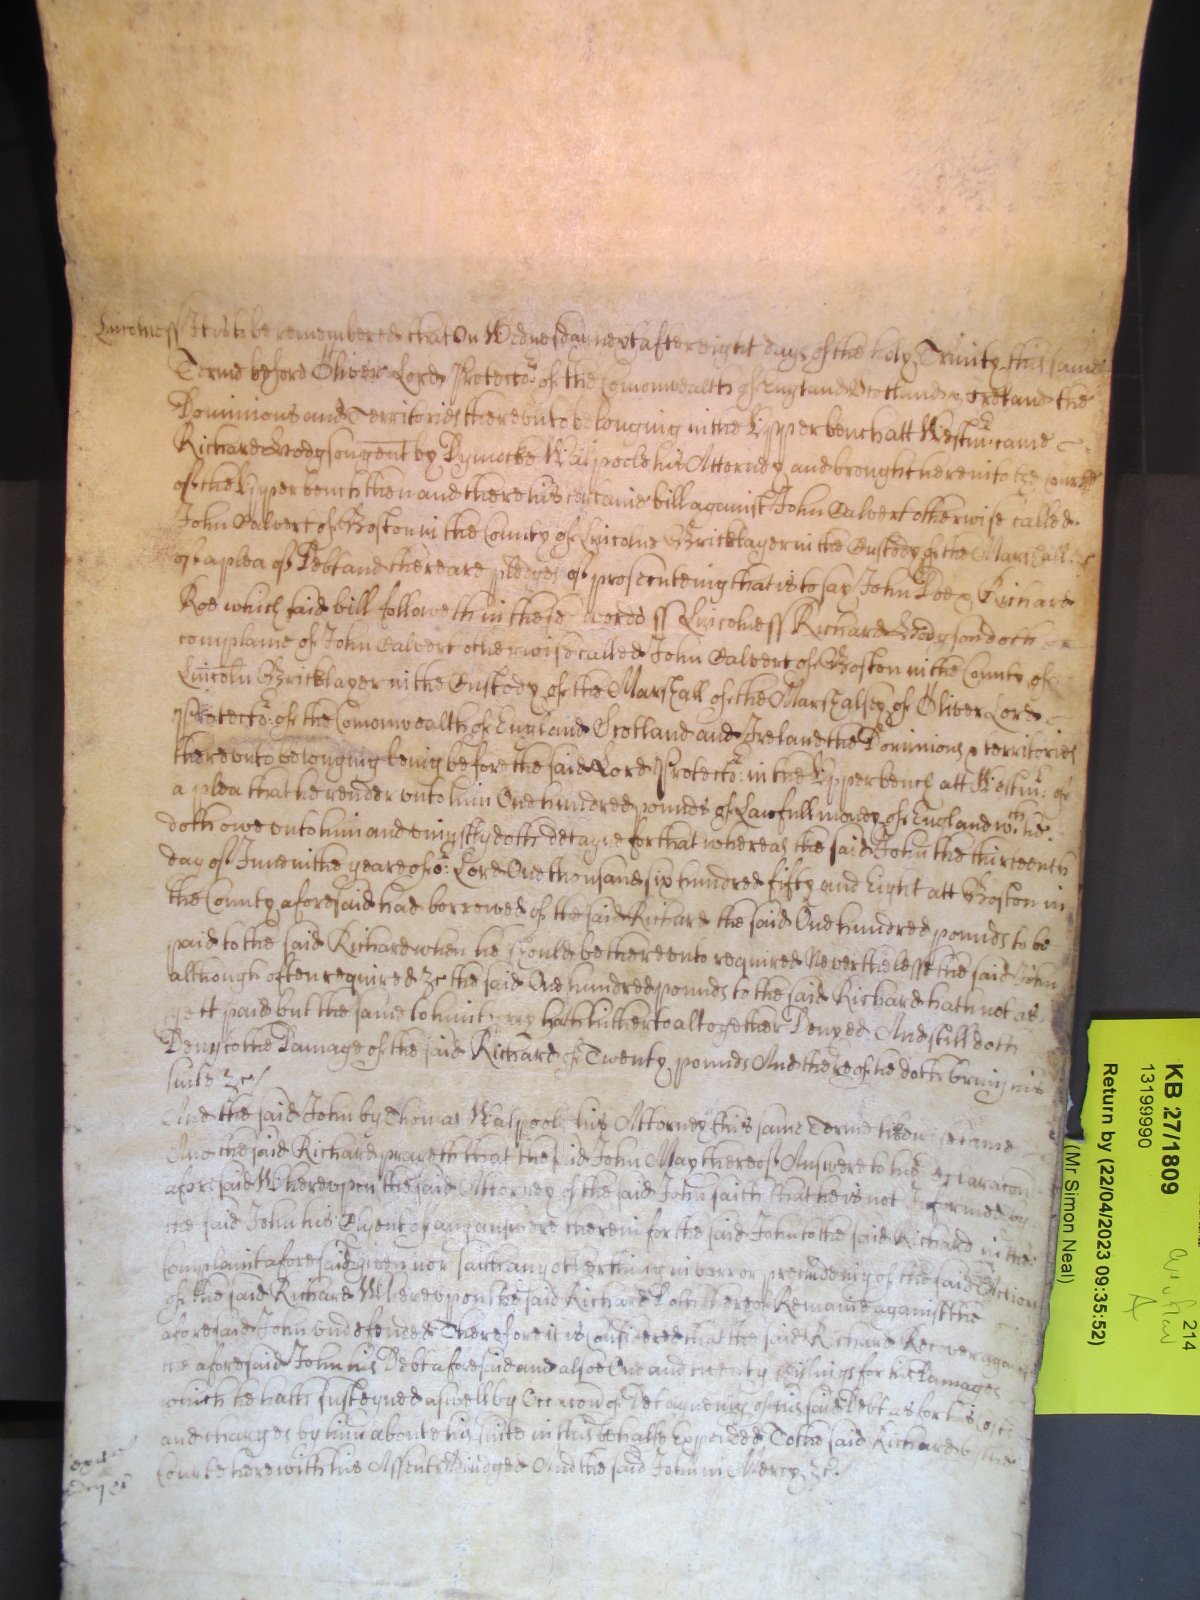 Lincolne ss It is to be remembred that On Wednesday next after eight days of the holy Trinity this same
Terme before Oliver Lord Protector of the Comonwealth of England Scotland & Ireland the
Dominions and Territories thereunto belonging in the Upper bench att Westmr came
Richard Hodgson gent by Dymocke Walpoole his Attorney and brought here into the Court
of the Upper bench then and there his certaine bill against John Calvert otherwise called
John Calvert of Boston in the County of Lincolne Bricklayer in the Custody of the Marshall &c
of a plea of Debt and there are pledges of prosecuteing that is to say John Doe & Richard
Roe which said bill followeth in these words ss Lincolne ss Richard Hodgson doth
complaine of John Calvert otherwise called John Calvert of Boston in the County of
Lincoln Bricklayer in the Custody of the Marshall of the Marshalsey of Oliver Lord
Protector of the Comonwealth of England Scotland and Ireland the Dominions & territories
thereunto belonging being before the said Lord Protector in the Upper bench att Westmr: of
a plea that he render unto him One hundred pounds of Lawfull money of England wch he
doth owe unto him and uniustly doth detayne for that whereas the said John the thirteenth
day of June in the yeare of or: Lord One thousand six hundred fifty and Eight att Boston in
the County aforesaid had borrowed of the said Richard the said One hundred pounds to be
paid to the said Richard when he should be thereunto required Neverthelesse the said John
although often required &c the said One hundred pounds to the said Richard hath not as
yett paid but the same to him to pay hath hitherto altogether Denyed And still doth
Deny to the Damage of the said Richard of Twenty pounds And thereof he doth bring his
suite &c
And the said John by Thomas Walpoole his Attorney this same Terme likewise came
And the said Richard prayeth that the said John May thereof Answere to his Declaracon
aforesaid Whereupon the said Attorney of the said John saith that he is not Informed by
the said John his Clyent of any answere therein for the said John to the said Richard in the
complaint aforesaid given nor saith any other thing in barr or precludeing of the said Action
of the said Richard Whereuppon the said Richard Doth thereof Remaine against the
aforesaid John undefended Therefore it is Considered that the said Richard Recover against
the aforesaid John his Debt aforesaid and alsoe One and twenty shillings for his Damages
which he hath susteyned aswell by Occasion of Detayneing of his said Debt as for his costs
and charges by him about his suite in this behalfe Expended To the said Richard by the
Court here with his Assent Adiudged And the said John in Mercy &c
KB 27/1809
13199990
Return by (22/04/2023 09:35:52)
(Mr Simon Neal)
214